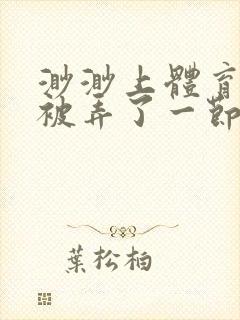 渺渺上體育
被弄了一節
葉松柏